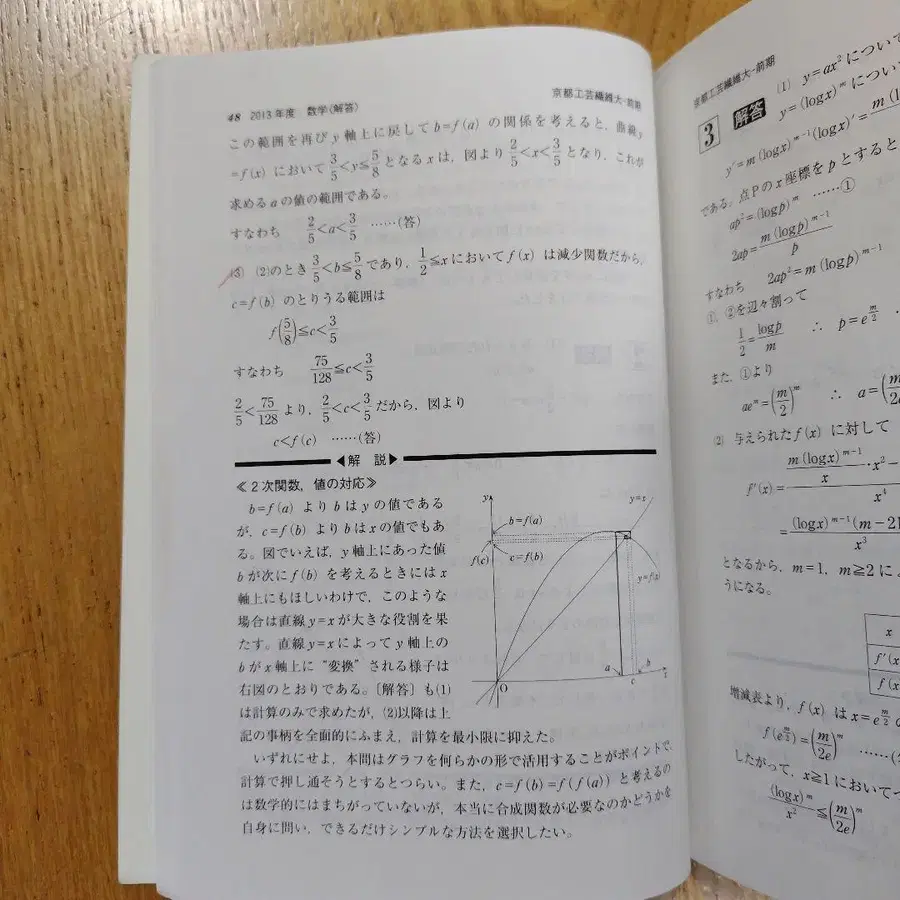 48 2013年度 数学(解答)
京都工芸繊維大-前期
この範囲を再びy軸上に戻してb=f(a)の関係を考えると、曲線y
=f(x)において3/5<y≦5/8となるxは、図より2/5<x<3/5となり、これが
求めるaの値の範囲である。
すなわち 2/5<a<3/5 ……(答)
(3) (2)のとき3/5<b≦5/8であり、1/2≦xにおいてf(x)は減少関数だから、
c=f(b)のとりうる範囲は
f(5/8)≦c<3/5
すなわち 75/128≦c<3/5
2/5<75/128より、2/5<c<3/5だから、図より
c<f(c) ……(答)
◀解 説▶
≪2次関数，値の対応≫
b=f(a)よりbはyの値である
が、c=f(b)よりbはxの値でもあ
る。図でいえば、y軸上にあった値
bが次にf(b)を考えるときにはx
軸上にもほしいわけで、このような
場合は直線y=xが大きな役割を果
たす。直線y=xによってy軸上の
bがx軸上に“変換”される様子は
右図のとおりである。〔解答〕も(1)
は計算のみで求めたが、(2)以降は上
記の事柄を全面的にふまえ、計算を最小限に抑えた。
いずれにせよ、本問はグラフを何らかの形で活用することがポイントで、
計算で押し通そうとするとつらい。また、c=f(b)=f(f(a))と考えるの
は数学的にはまちがっていないが、本当に合成関数が必要なのかどうかを
自身に問い、できるだけシンプルな方法を選択したい。
y
y=x
b=f(a)
c=f(b)
f(c)
y=f(x)
O
a
c
b
x
京都工芸繊維大-前期
3 解答 (1) y=ax²について
y=(logx)^mについ
y'=m(logx)^{m-1}(logx)'=m(log
である。点Pのx座標をpとすると
ap²=(logp)^m ……①
2ap=m(logp)^{m-1}/p
すなわち 2ap²=m(logp)^{m-1}
①，②を辺々割って
1/2=logp/m ∴ p=e^{m/2}
また、①より
ae^m=(m/2)^m ∴ a=(m/2e
(2) 与えられたf(x)に対して
f'(x)=m(logx)^{m-1}/x・x²-
x⁴
=(logx)^{m-1}(m-2l
x³
となるから、m=1，m≧2に
うになる。
x
f'(x
f(x
増減表より、f(x)はx=e^{m/2}
f(e^{m/2})=(m/2e)^m ……
したがって、x≧1において
(logx)^m/x²≦(m/2e)^m